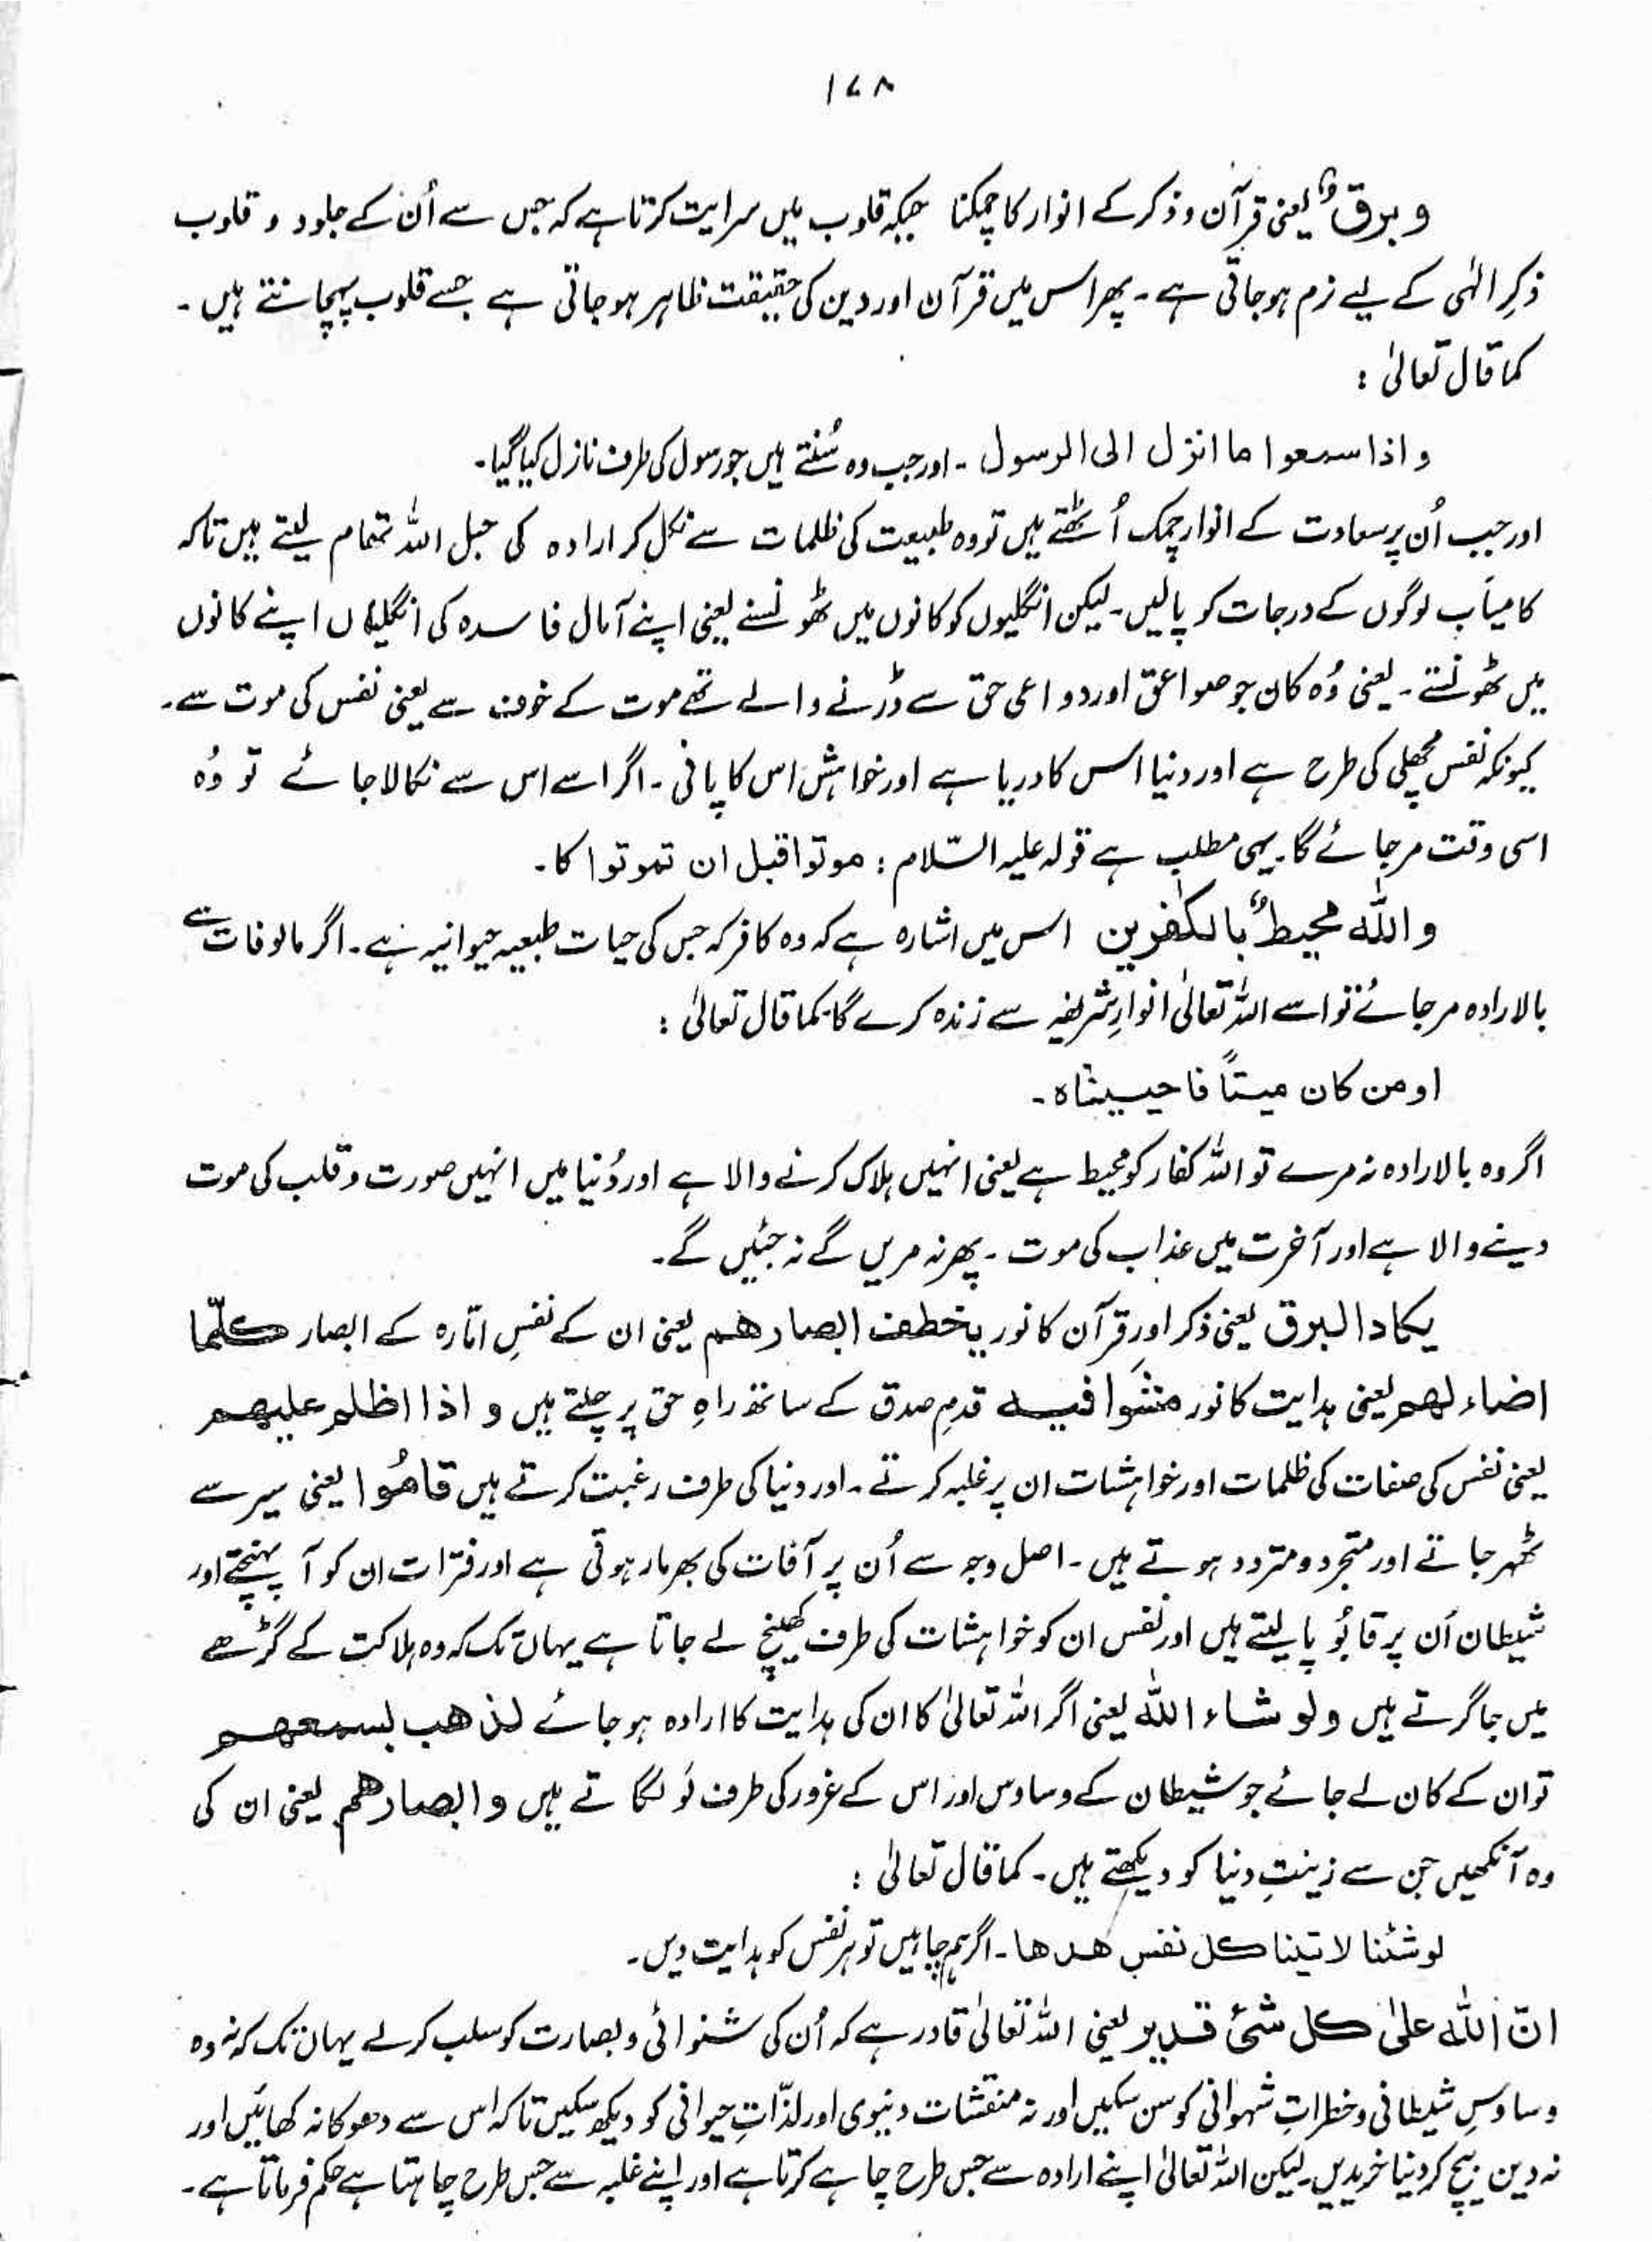 ۱۷۸
و برقٌ یعنی قرآن و ذکر کے انوار کا چمکنا جبکہ قلوب میں سرایت کرتا ہے کہ جس سے اُن کے جلود و قلوب
ذکرِ الٰہی کے لیے نرم ہوجاتی ہے۔ پھر اس میں قرآن اور دین کی حقیقت ظاہر ہوجاتی ہے جسے قلوب پہچانتے ہیں۔
کما قال تعالیٰ :
و اذا سمعوا ما انزل الی الرسول ۔ اور جب وہ سُنتے ہیں جو رسول کی طرف نازل کیا گیا۔
اور جب اُن پر سعادت کے انوار چمک اُٹھتے ہیں تو وہ طبیعت کی ظلمات سے نکل کر ارادہ کی حبل اللہ تھام لیتے ہیں تاکہ
کامیاب لوگوں کے درجات کو پالیں۔ لیکن انگلیوں کو کانوں میں ٹھونسنے یعنی اپنے آمال فاسدہ کی انگلیاں اپنے کانوں
میں ٹھونستے۔ یعنی وُہ کان جو صواعق اور دواعی حق سے ڈرنے والے تھے موت کے خوف سے یعنی نفس کی موت سے۔
کیونکہ نفس مچھلی کی طرح ہے اور دنیا اس کا دریا ہے اور خواہش اس کا پانی ۔ اگر اسے اس سے نکالا جائے تو وُہ
اسی وقت مرجائے گا۔ یہی مطلب ہے قولہ علیہ السّلام : موتوا قبل ان تموتوا کا۔
و اللّٰہ محیطٌ بالکٰفرین اس میں اشارہ ہے کہ وہ کافر کہ جس کی حیات طبعیہ حیوانیہ ہے۔ اگر مالوفات سے
بالارادہ مرجائے تو اسے اللہ تعالیٰ انوارِ شریفہ سے زندہ کرے گا کما قال تعالیٰ :
او من کان میتاً فاحییناہ ۔
اگر وہ بالارادہ نہ مرے تو اللہ کفار کو محیط ہے یعنی انہیں ہلاک کرنے والا ہے اور دُنیا میں انہیں صورت و قلب کی موت
دینے والا ہے اور آخرت میں عذاب کی موت ۔ پھر نہ مریں گے نہ جئیں گے۔
یکاد البرق یعنی ذکر اور قرآن کا نور یخطف ابصارھم یعنی ان کے نفسِ امّارہ کے ابصار کلّما
اضاء لھم یعنی ہدایت کا نور مشوا فیہ قدمِ صدق کے ساتھ راہِ حق پر چلتے ہیں و اذا اظلم علیھم
یعنی نفس کی صفات کی ظلمات اور خواہشات ان پر غلبہ کرتے ۔ اور دنیا کی طرف رغبت کرتے ہیں قامُوا یعنی سیر سے
ٹھہر جاتے اور متجرد و متردد ہوتے ہیں ۔ اصل وجہ سے اُن پر آفات کی بھرمار ہوتی ہے اور فترات ان کو آ پہنچتے اور
شیطان اُن پر قابُو پا لیتے ہیں اور نفس ان کو خواہشات کی طرف کھینچ لے جاتا ہے یہاں تک کہ وہ ہلاکت کے گڑھے
میں جا گرتے ہیں و لو شاء اللّٰہ یعنی اگر اللہ تعالیٰ کا ان کی ہدایت کا ارادہ ہوجائے لذھب بسمعھم
تو ان کے کان لے جائے جو شیطان کے وساوس اور اس کے غرور کی طرف لَو لگاتے ہیں و ابصارھم یعنی ان کی
وہ آنکھیں جن سے زینتِ دنیا کو دیکھتے ہیں۔ کما قال تعالیٰ :
لو شئنا لاتینا کل نفس ھدھا ۔ اگر ہم چاہیں تو ہر نفس کو ہدایت دیں۔
انّ اللّٰہ علیٰ کل شیٔ قدیر یعنی اللہ تعالیٰ قادر ہے کہ اُن کی شنوائی و بصارت کو سلب کرلے یہاں تک کہ نہ وہ
وساوسِ شیطانی و خطراتِ شہوانی کو سن سکیں اور نہ منقشات دنیوی اور لذّاتِ حیوانی کو دیکھ سکیں تاکہ اس سے دھوکا نہ کھائیں اور
نہ دین بیچ کر دنیا خریدیں۔ لیکن اللہ تعالیٰ اپنے ارادہ سے جس طرح چاہے کرتا ہے اور اپنے غلبہ سے جس طرح چاہتا ہے حکم فرماتا ہے۔